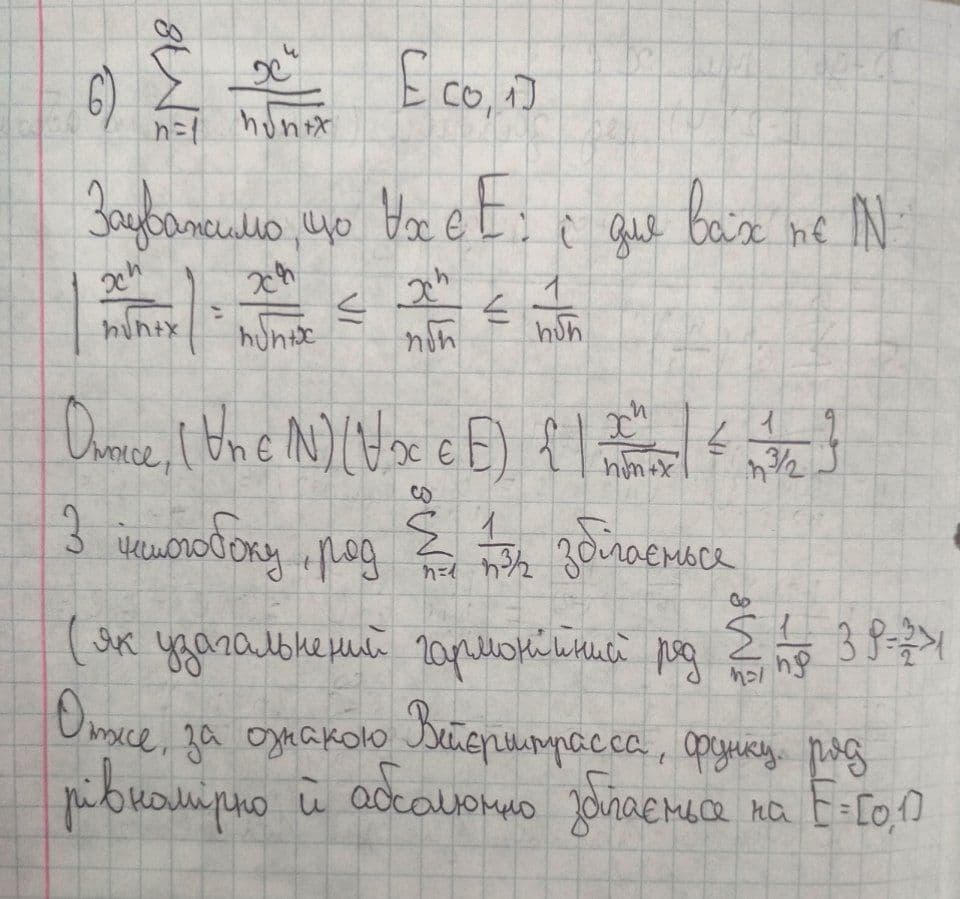 б) ∑_{n=1}^{∞} x^n / (n√(n+x))   E [0, 1]
Зауважимо, що ∀x ∈ E: і для всіх n ∈ ℕ:
|x^n / (n√(n+x))| = x^n / (n√(n+x)) ≤ x^n / (n√n) ≤ 1 / (n√n)
Отже, (∀n ∈ ℕ)(∀x ∈ E) {|x^n / (n√(n+x))| ≤ 1 / n^{3/2}}
З іншого боку, ряд ∑_{n=1}^{∞} 1 / n^{3/2} збігається
(як узагальнений гармонійний ряд ∑_{n=1}^{∞} 1 / n^ρ з ρ = 3/2 > 1
Отже, за ознакою Вейєрштрасса, функц. ряд
рівномірно й абсолютно збігається на E = [0, 1]